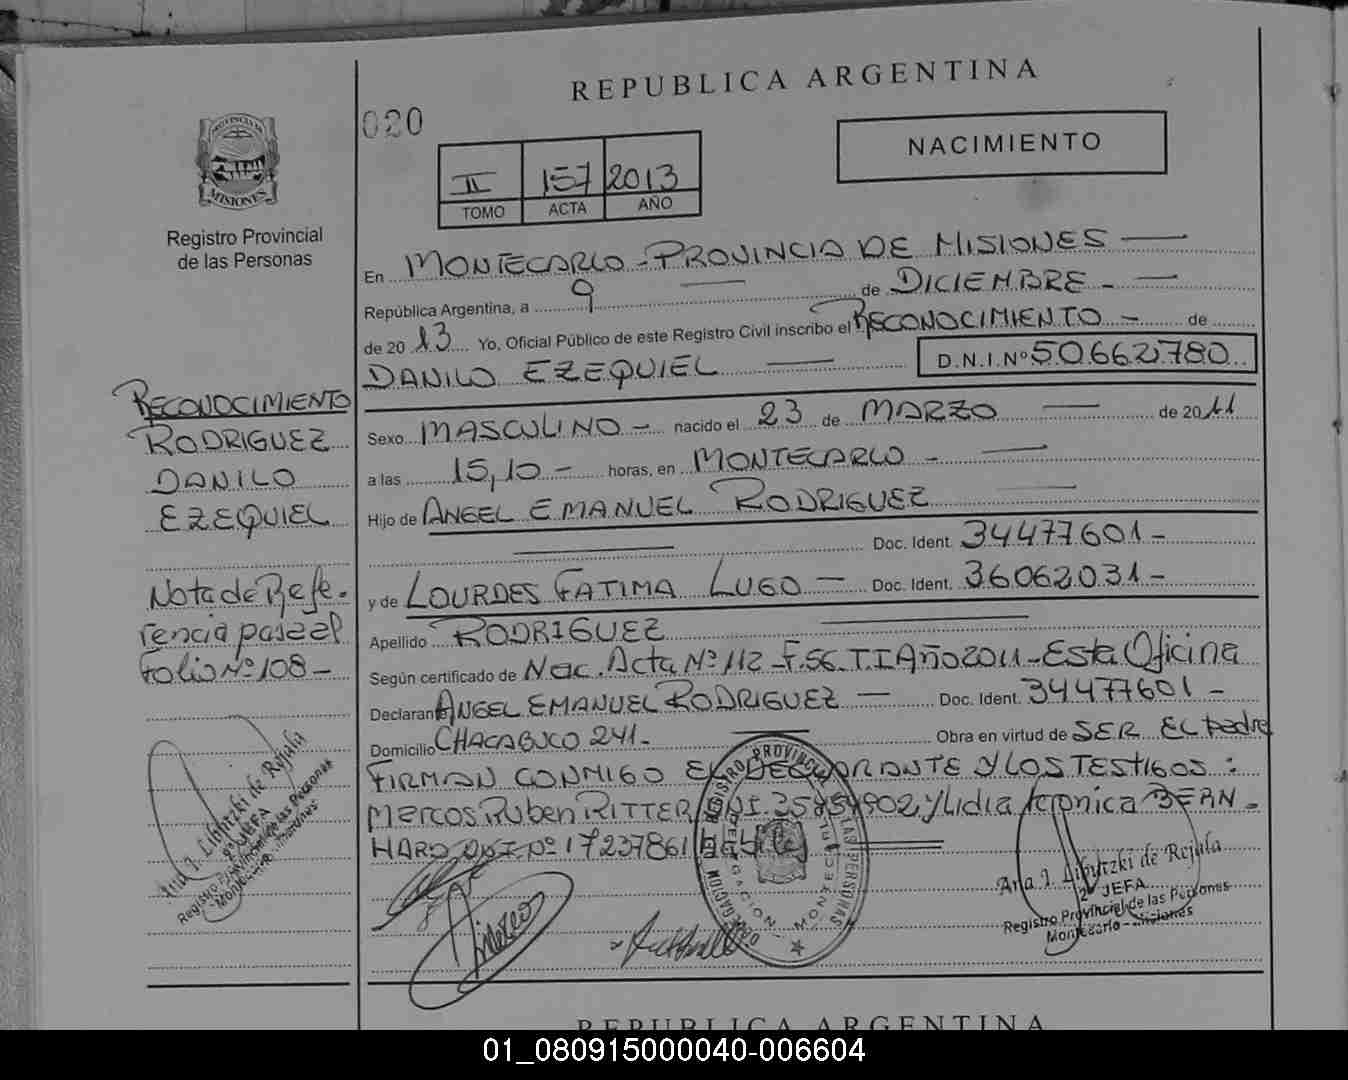 REPUBLICA ARGENTINA
020
NACIMIENTO
II 157 2013
TOMO ACTA AÑO
PROVINCIA DE
MISIONES
Registro Provincial
de las Personas
En MONTECARLO - PROVINCIA DE MISIONES —
República Argentina, a 9 — de DICIEMBRE -  —
de 2013 Yo, Oficial Público de este Registro Civil inscribo el RECONOCIMIENTO - de
DANILO EZEQUIEL — D.N.I.Nº 50.662.780
Sexo MASCULINO - nacido el 23 de MARZO — de 2011
a las 15,10 - horas, en MONTECARLO - —
Hijo de ANGEL EMANUEL RODRIGUEZ —
— Doc. Ident. 34477601 -
y de LOURDES FATIMA LUGO — Doc. Ident. 36062031 -
Apellido RODRIGUEZ —
Según certificado de Nac. Acta Nº 112 - F.56. T.I Año 2011 - Esta Oficina
Declarante ANGEL EMANUEL RODRIGUEZ — Doc. Ident. 34477601 -
Domicilio CHACABUCO 241 - — Obra en virtud de SER EL padre
FIRMAN CONMIGO EL DECLARANTE Y LOS TESTIGOS :
Marcos Ruben RITTER DNI. 35 902 y Lidia Veronica BERN -
HARD DNI Nº 17237861 habiles
RECONOCIMIENTO
RODRIGUEZ
DANILO
EZEQUIEL
Nota de Refe-
rencia pasa al
Folio Nº 108 -
Ana I. Libutzki de Rejala
2º JEFA
Registro Provincial de las Personas
Montecarlo - Misiones
REGISTRO PROVINCIAL DE LAS PERSONAS
DELEGACION - MONTECARLO
Ana I. Libutzki de Rejala
2º JEFA
Registro Provincial de las Personas
Montecarlo - Misiones
REPUBLICA ARGENTINA
01_080915000040-006604